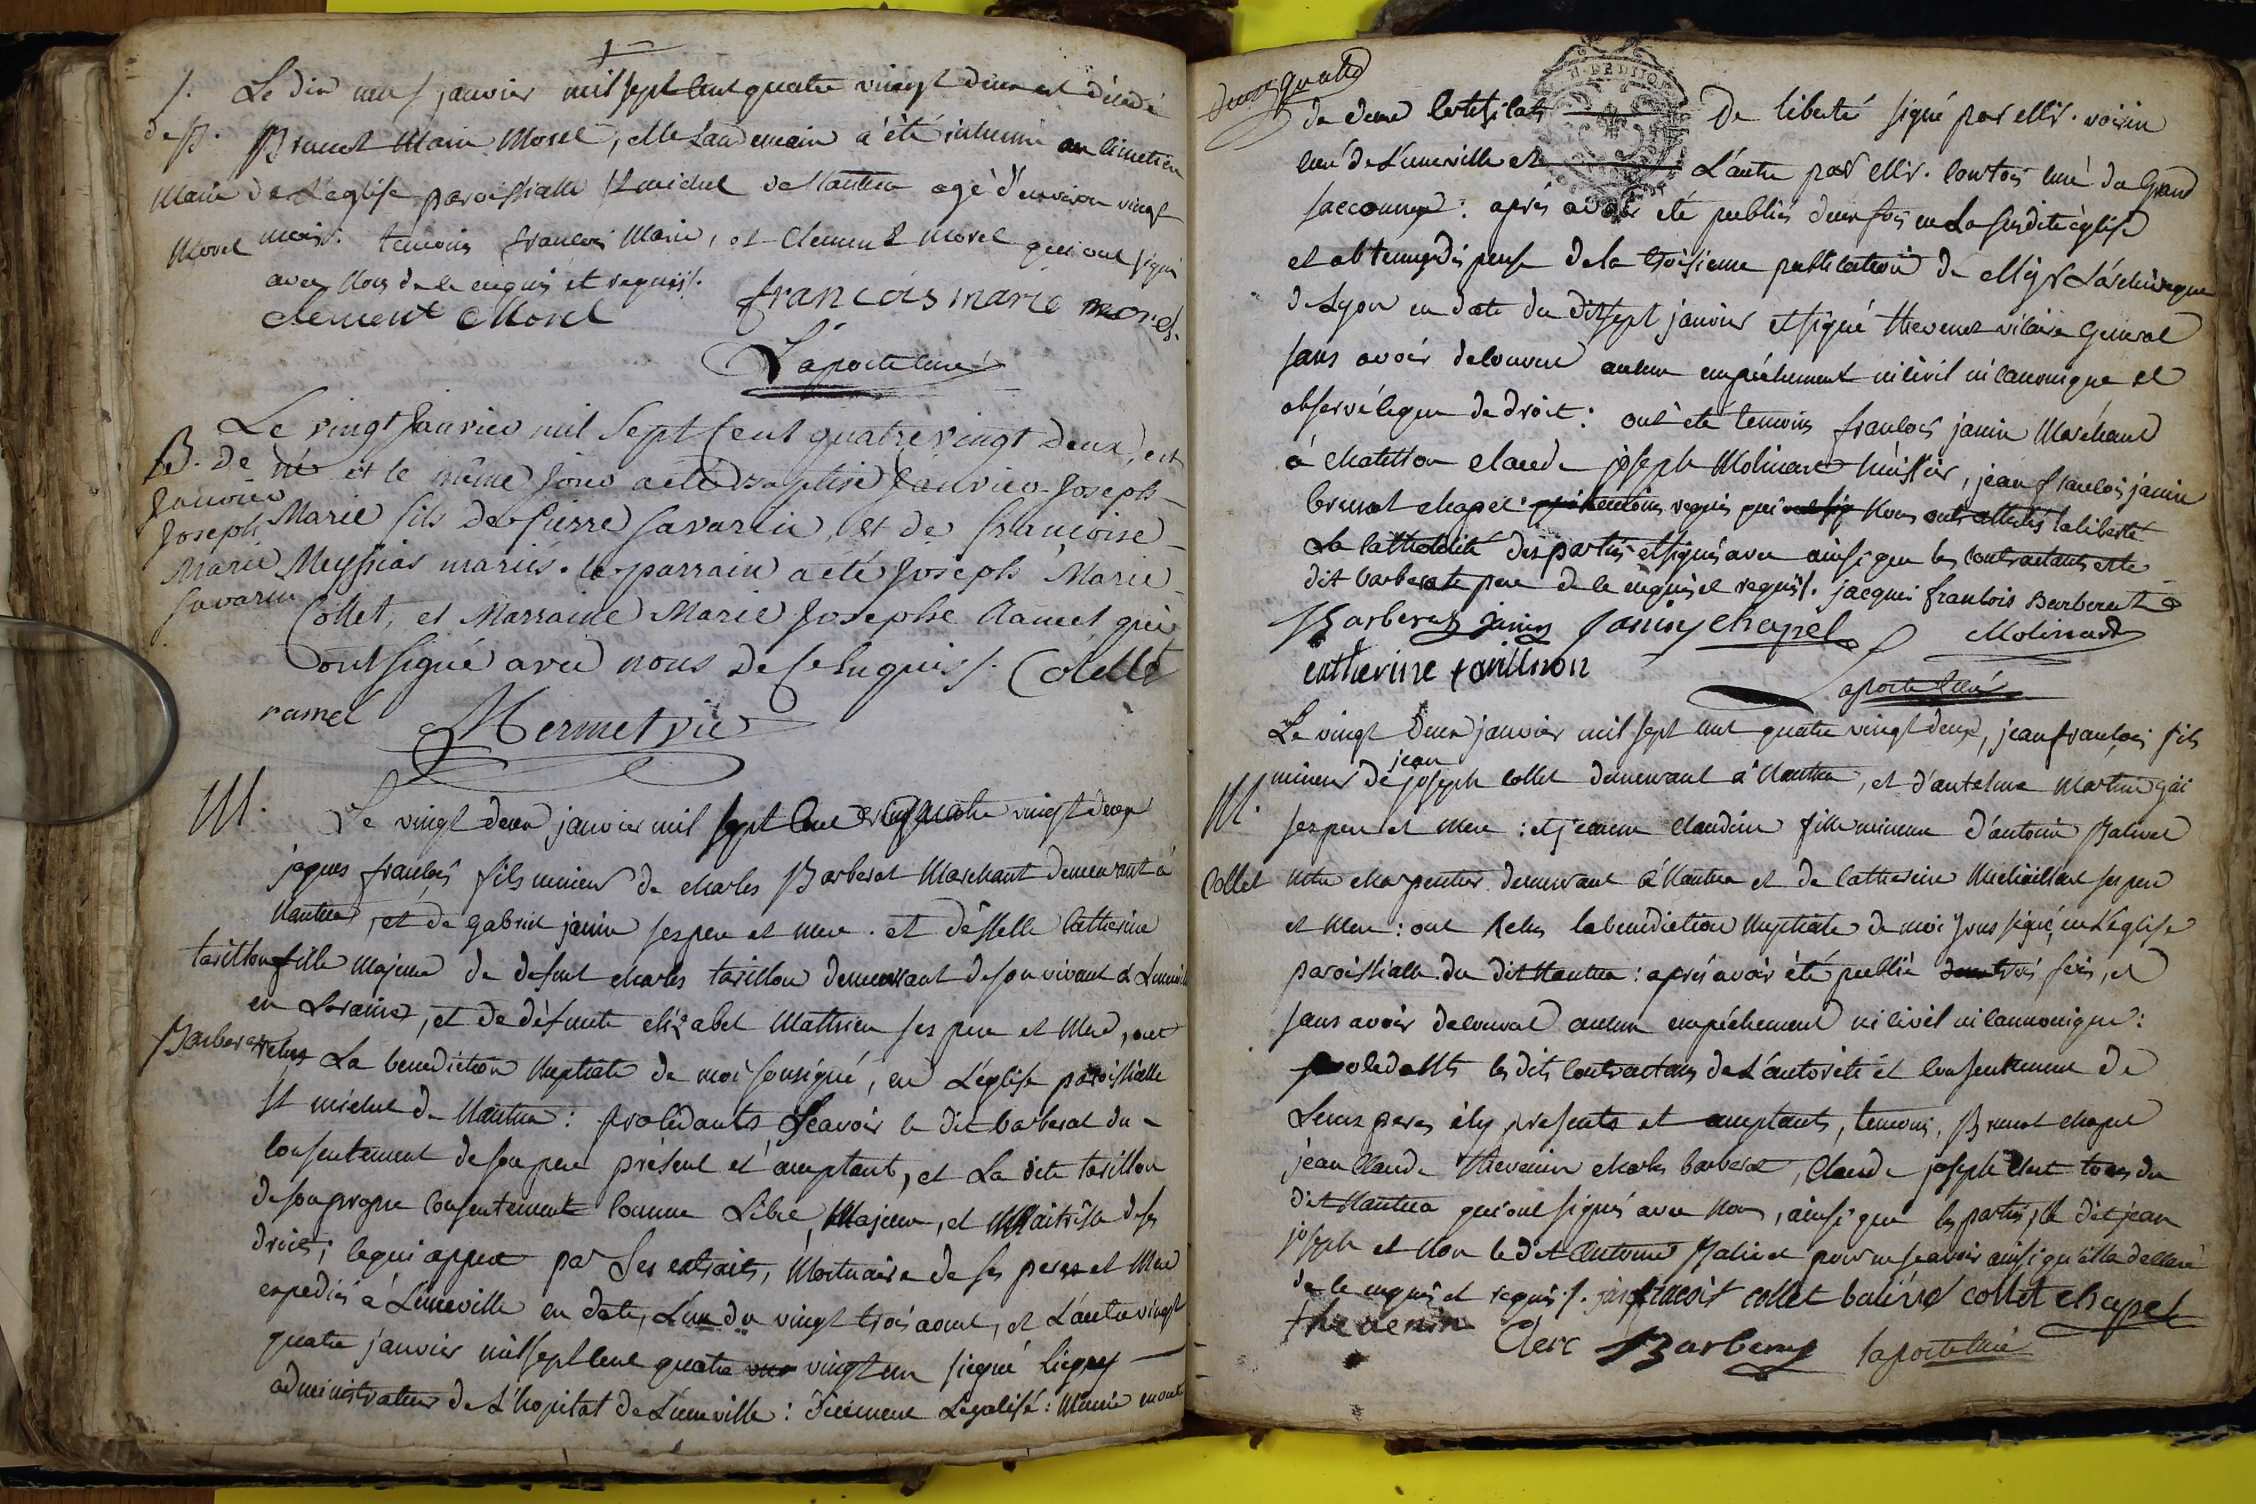 S. Le dix neuf janvier mil sept cent quatre vingt deux est décédé
de B. Brunet Marie Morel, et le Landemain a été inhumé au cimetiere
Marie de L'eglise paroissialle St michel de Nantua agé d'environ vingt
Morel mois. temoins francois Marie, et Clement Morel qui ont signé
avec Nous de ce enquis et requis ./.
clement Morel francois marie morel
Laporte curé
Le vingt Janvier mil Sept Cent quatre vingt deux, est
B. de né et le même Jour a été Baptisé Janvier Joseph
Janvier
Joseph Marie fils de Pierre Savarin, et de francoise
Marie Meyssias mariés. le parrain a été Joseph Marie
Savarin
Collet, et Marraine Marie Josephe Ramel qui
ont signé avec nous de ce Enquis ./. Colellet
ramel Mermet vic
M. Le vingt deux janvier mil sept cent quatre vingt deux
jaques francois fils mineur de charles Barberat Marchant demeurant à
Nantua, et de gabriel janin ses pere et mere. et demelle Catherine
tarillon fille majeure de defunt charles tarillon demeurant de son vivant à Luneville
en Loraine, et de défunte elizabet Matthieu ses pere et Mere, ont
Barberat reçus La benediction Nuptiale de moi sousigné, en L'église paroissialle
St michel de Nantua : procédants, Sçavoir le dit barberat du
consentement de son pere présent et acceptant, et La dite tarillon
de son propre consentement comme Libre, Majeure, et Maitresse de ses
droits ; ce qui appert par Ses extraits, Mortuaire de ses peres et Mere
expediés à Luneville en date, L'un du vingt trois aout, et L'autre vingt
quatre janvier mil sept cent quatre vingt un signé Liegey
administrateur de L'hopital de Luneville : düement Légalisé : Munie en outre
deux quatre
de deux Certificats De liberté signé par Mr. voisin
curé de Luneville et L'autre par Mr. Courtois curé du Grand
sacconnex : après avoir été publiés deux fois en La susdite église
et obtenu dispense de la troisieme publication de Mgr L'archeveque
de Lyon en date du dit sept janvier et signé thevenet vicaire General
sans avoir decouvert aucun empêchement ni civil ni canonique et
observé ce que de droit : ont été temoins francois janin Marchand
à chatillon claude joseph Molinard huissier, jean francois janin
brunot chapel : temoins requis qui Nous ont attestés la liberté
La Catholicité des parties et signés avec ainsi que les contractants et le
dit barberat pere de ce enquis et requis ./. jacques francois Barberat
Barberat Janin Janin chapel Molinard
catherine tarillion
Laporte curé
Le vingt deux janvier mil sept cent quatre vingt deux, jean francois fils
M. mineur de jean joseph collet demeurant à Nantua, et d'antelme Martin gai
ses pere et mere : et jeanne Claudine fille mineure d'antoine Balivet
Collet Mtre charpentier demeurant à Nantua et de Catherine Michaillard ses pere
et Mere : ont Reçus la benédiction Nuptiale de moi sousigné, en L'église
paroissialle du dit Nantua : après avoir été publié trois fois, et
sans avoir decouvert aucun empéchement ni civil ni cannonique :
procedants les dits contractans de L'autorité et consentement de
Leurs peres ici presents et acceptants, temoins, Brunot chapel
jean Claude thevenin charles barberat, Claude joseph Clert tous du
dit Nantua qui ont signés avec Nous, ainsi que les parties, le dit jean
joseph et Non le dit Antoine Balivet pour ne scavoir ainsi qu'il l'a declaré
de ce enquis et requis ./. jean francois collet balivet collet chapel
thevenin Clerc Barberat Laporte curé